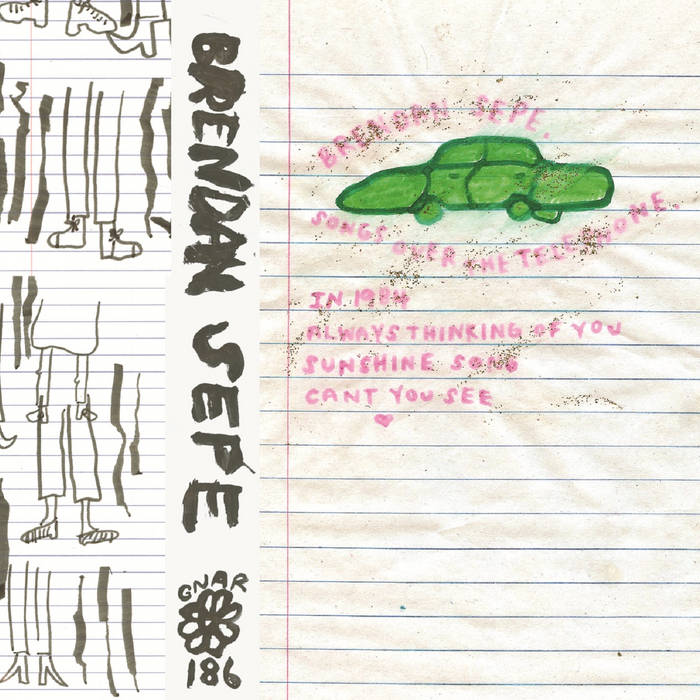 BRENDAN SEPE
GNAR
186
BRENDAN SEPE.
SONGS OVER THE TELEPHONE.
IN 1984
ALWAYS THINKING OF YOU
SUNSHINE SONG
CANT YOU SEE